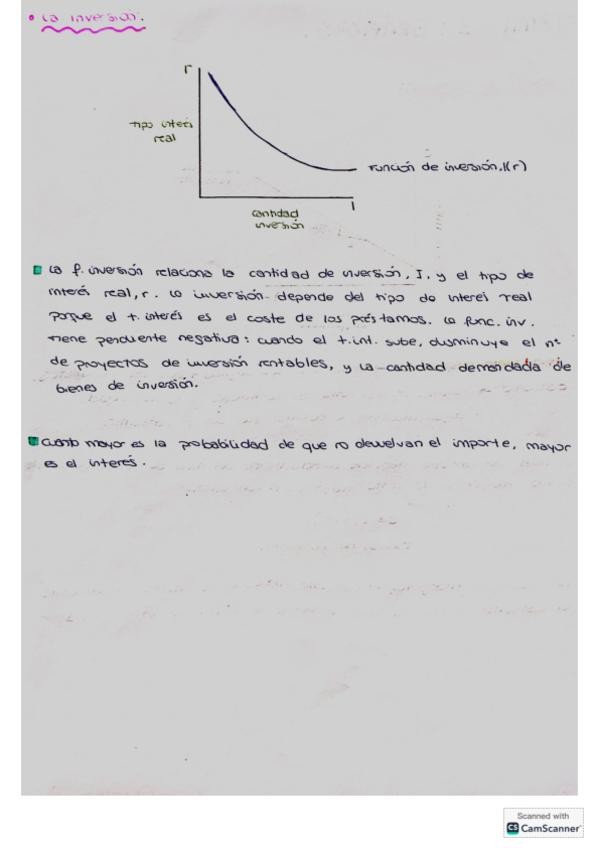 • La inversión.
r
tipo interés
real
Función de inversión, I(r)
I
cantidad
inversión
La f. inversión relaciona la cantidad de inversión, I, y el tipo de
interés real, r. La inversión depende del tipo de interés real
porque el t. interés es el coste de los préstamos. La func. inv.
tiene pendiente negativa: cuando el t. int. sube, disminuye el nº
de proyectos de inversión rentables, y la cantidad demandada de
bienes de inversión.
Cuanto mayor es la probabilidad de que no devuelvan el importe, mayor
es el interés.
Scanned with
CS CamScanner